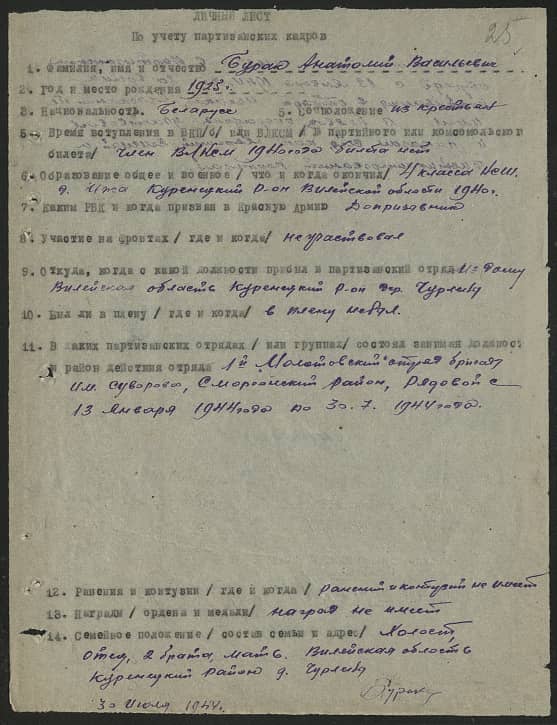 ЛИЧНЫЙ ЛИСТ
25
По учету партизанских кадров
1. Фамилия, имя и отчество Бурак Анатолий Васильевич
2. год и место рождения 1925 г.
3. Национальность. Беларусс 5. соцположение из крестьян
5. Время вступления в ВКП/б/ или ВЛКСМ / № партийного или комсомольского
билета/ член ВЛКСМ 1940 года билета нет
6. Образование общее и военное / что и когда окончил/ 4 класса
д. Ижа Куренецкий р-он Вилейской области 1940г.
7. Каким РВК и когда призван в Красную Армию Допризывник
8. Участие на фронтах / где и когда/ не участвовал
9. Откуда, когда с какой должности прибыл в партизанский отряд Из дому
Вилейская область Куренецкий р-он дер.
10. Был ли в плену / где и когда/ в плену не был.
11. В каких партизанских отрядах / или группах/ состоял занимал должност
и район действия отряда 1й Молотовский отряд бригад
им. Суворова, Сморгонский район, Рядовой с
13 января 1944 года по 30.7. 1944 года.
12. Ранения и контузии / где и когда / ранений и контузий не имеет
13. Награды / ордена и медали/ наград не имеет
14. Семейное положение / состав семьи и адрес/ Холост,
отец, 2 брата, мать. Вилейская область
Куренецкий район д.
30 июля 1944.